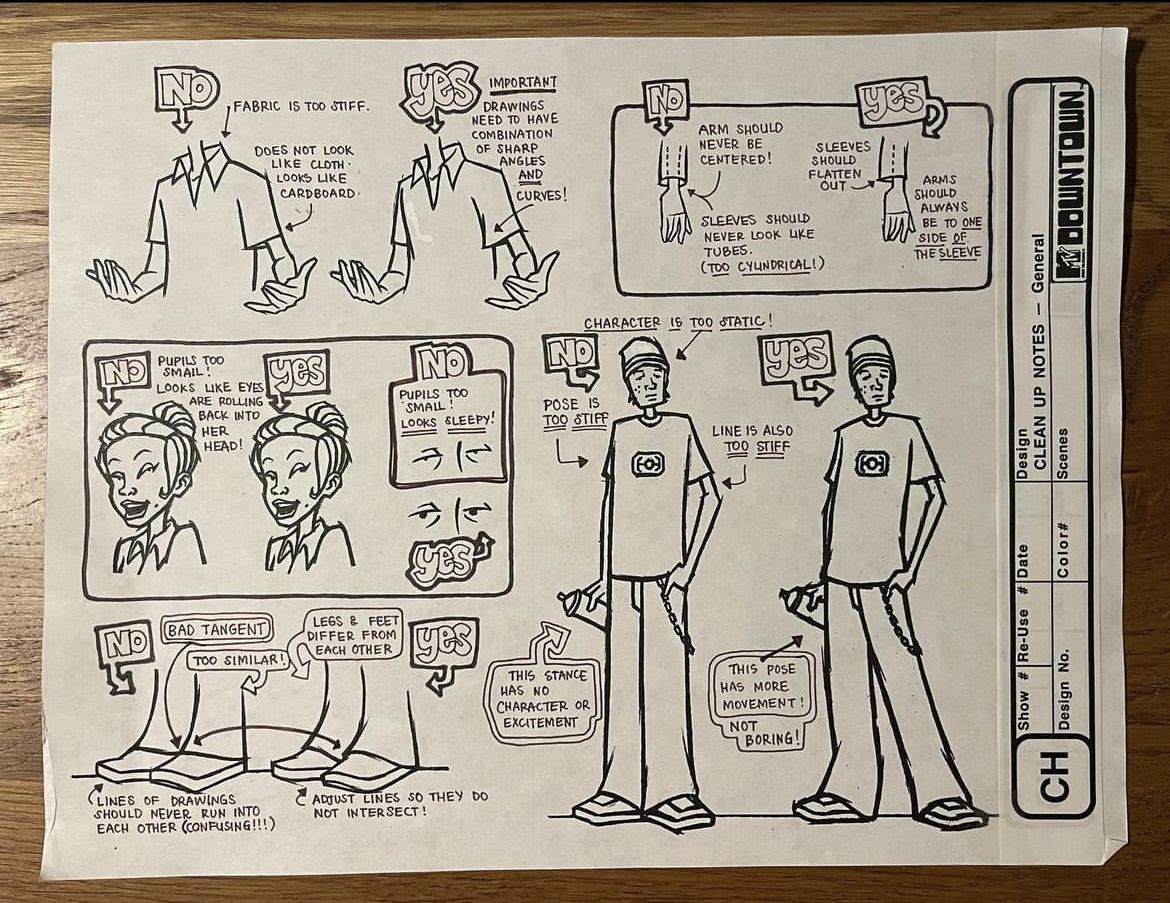 NO
FABRIC IS TOO STIFF.
DOES NOT LOOK
LIKE CLOTH.
LOOKS LIKE
CARDBOARD.
YES
IMPORTANT
DRAWINGS
NEED TO HAVE
COMBINATION
OF SHARP
ANGLES
AND
CURVES!
NO
ARM SHOULD
NEVER BE
CENTERED!
SLEEVES SHOULD
NEVER LOOK LIKE
TUBES.
(TOO CYLINDRICAL!)
YES
SLEEVES
SHOULD
FLATTEN
OUT
ARMS
SHOULD
ALWAYS
BE TO ONE
SIDE OF
THE SLEEVE
NO
PUPILS TOO
SMALL!
LOOKS LIKE EYES
ARE ROLLING
BACK INTO
HER
HEAD!
YES
NO
PUPILS TOO
SMALL!
LOOKS SLEEPY!
YES
CHARACTER IS TOO STATIC!
NO
POSE IS
TOO STIFF
LINE IS ALSO
TOO STIFF
THIS STANCE
HAS NO
CHARACTER OR
EXCITEMENT
YES
THIS POSE
HAS MORE
MOVEMENT!
NOT
BORING!
NO
BAD TANGENT
TOO SIMILAR!
LEGS & FEET
DIFFER FROM
EACH OTHER
YES
LINES OF DRAWINGS
SHOULD NEVER RUN INTO
EACH OTHER (CONFUSING!!!)
ADJUST LINES SO THEY DO
NOT INTERSECT!
CH
Show # Re-Use # Date Design
CLEAN UP NOTES – General
Design No. Color# Scenes
MTV DOWNTOWN